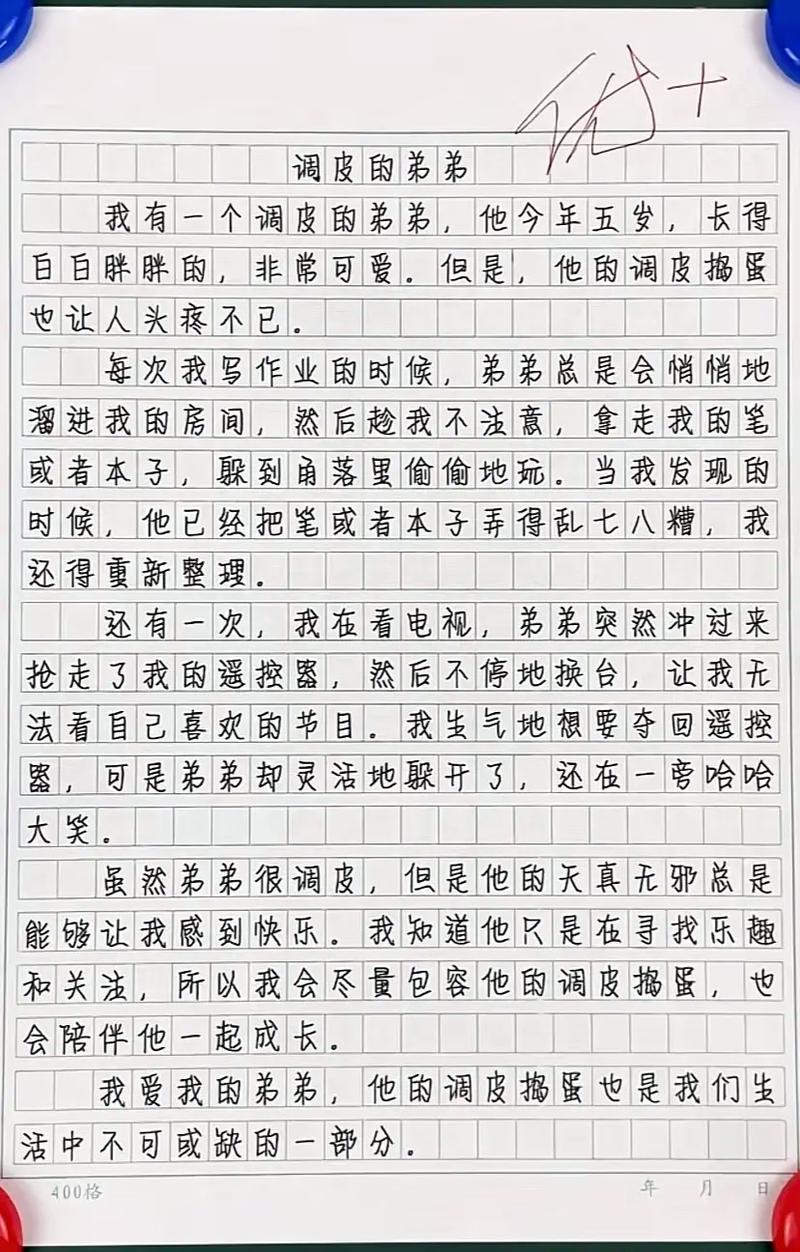 优+
调皮的弟弟
我有一个调皮的弟弟，他今年五岁，长得
白白胖胖的，非常可爱。但是，他的调皮捣蛋
也让人头疼不已。
每次我写作业的时候，弟弟总是会悄悄地
溜进我的房间，然后趁我不注意，拿走我的笔
或者本子，躲到角落里偷偷地玩。当我发现的
时候，他已经把笔或者本子弄得乱七八糟，我
还得重新整理。
还有一次，我在看电视，弟弟突然冲过来
抢走了我的遥控器，然后不停地换台，让我无
法看自己喜欢的节目。我生气地想要夺回遥控
器，可是弟弟却灵活地躲开了，还在一旁哈哈
大笑。
虽然弟弟很调皮，但是他的天真无邪总是
能够让我感到快乐。我知道他只是在寻找乐趣
和关注，所以我会尽量包容他的调皮捣蛋，也
会陪伴他一起成长。
我爱我的弟弟，他的调皮捣蛋也是我们生
活中不可或缺的一部分。
400格 年 月 日